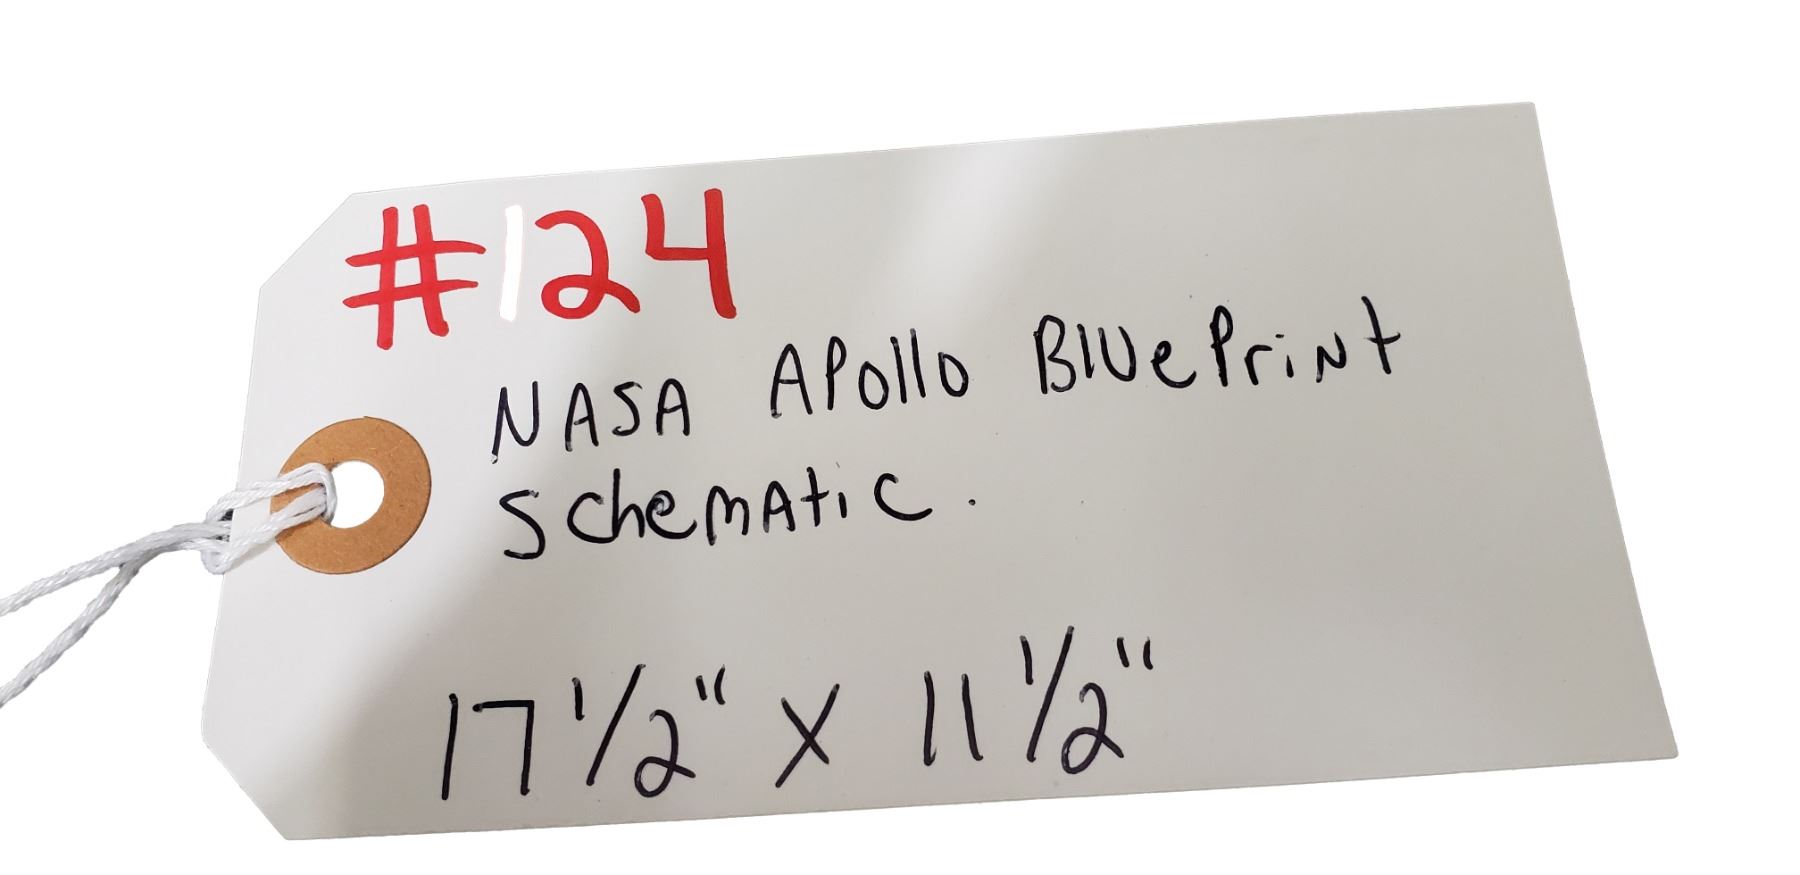 #124
NASA APollo BluePrint
SchemAtic.
17 1/2" X 11 1/2"